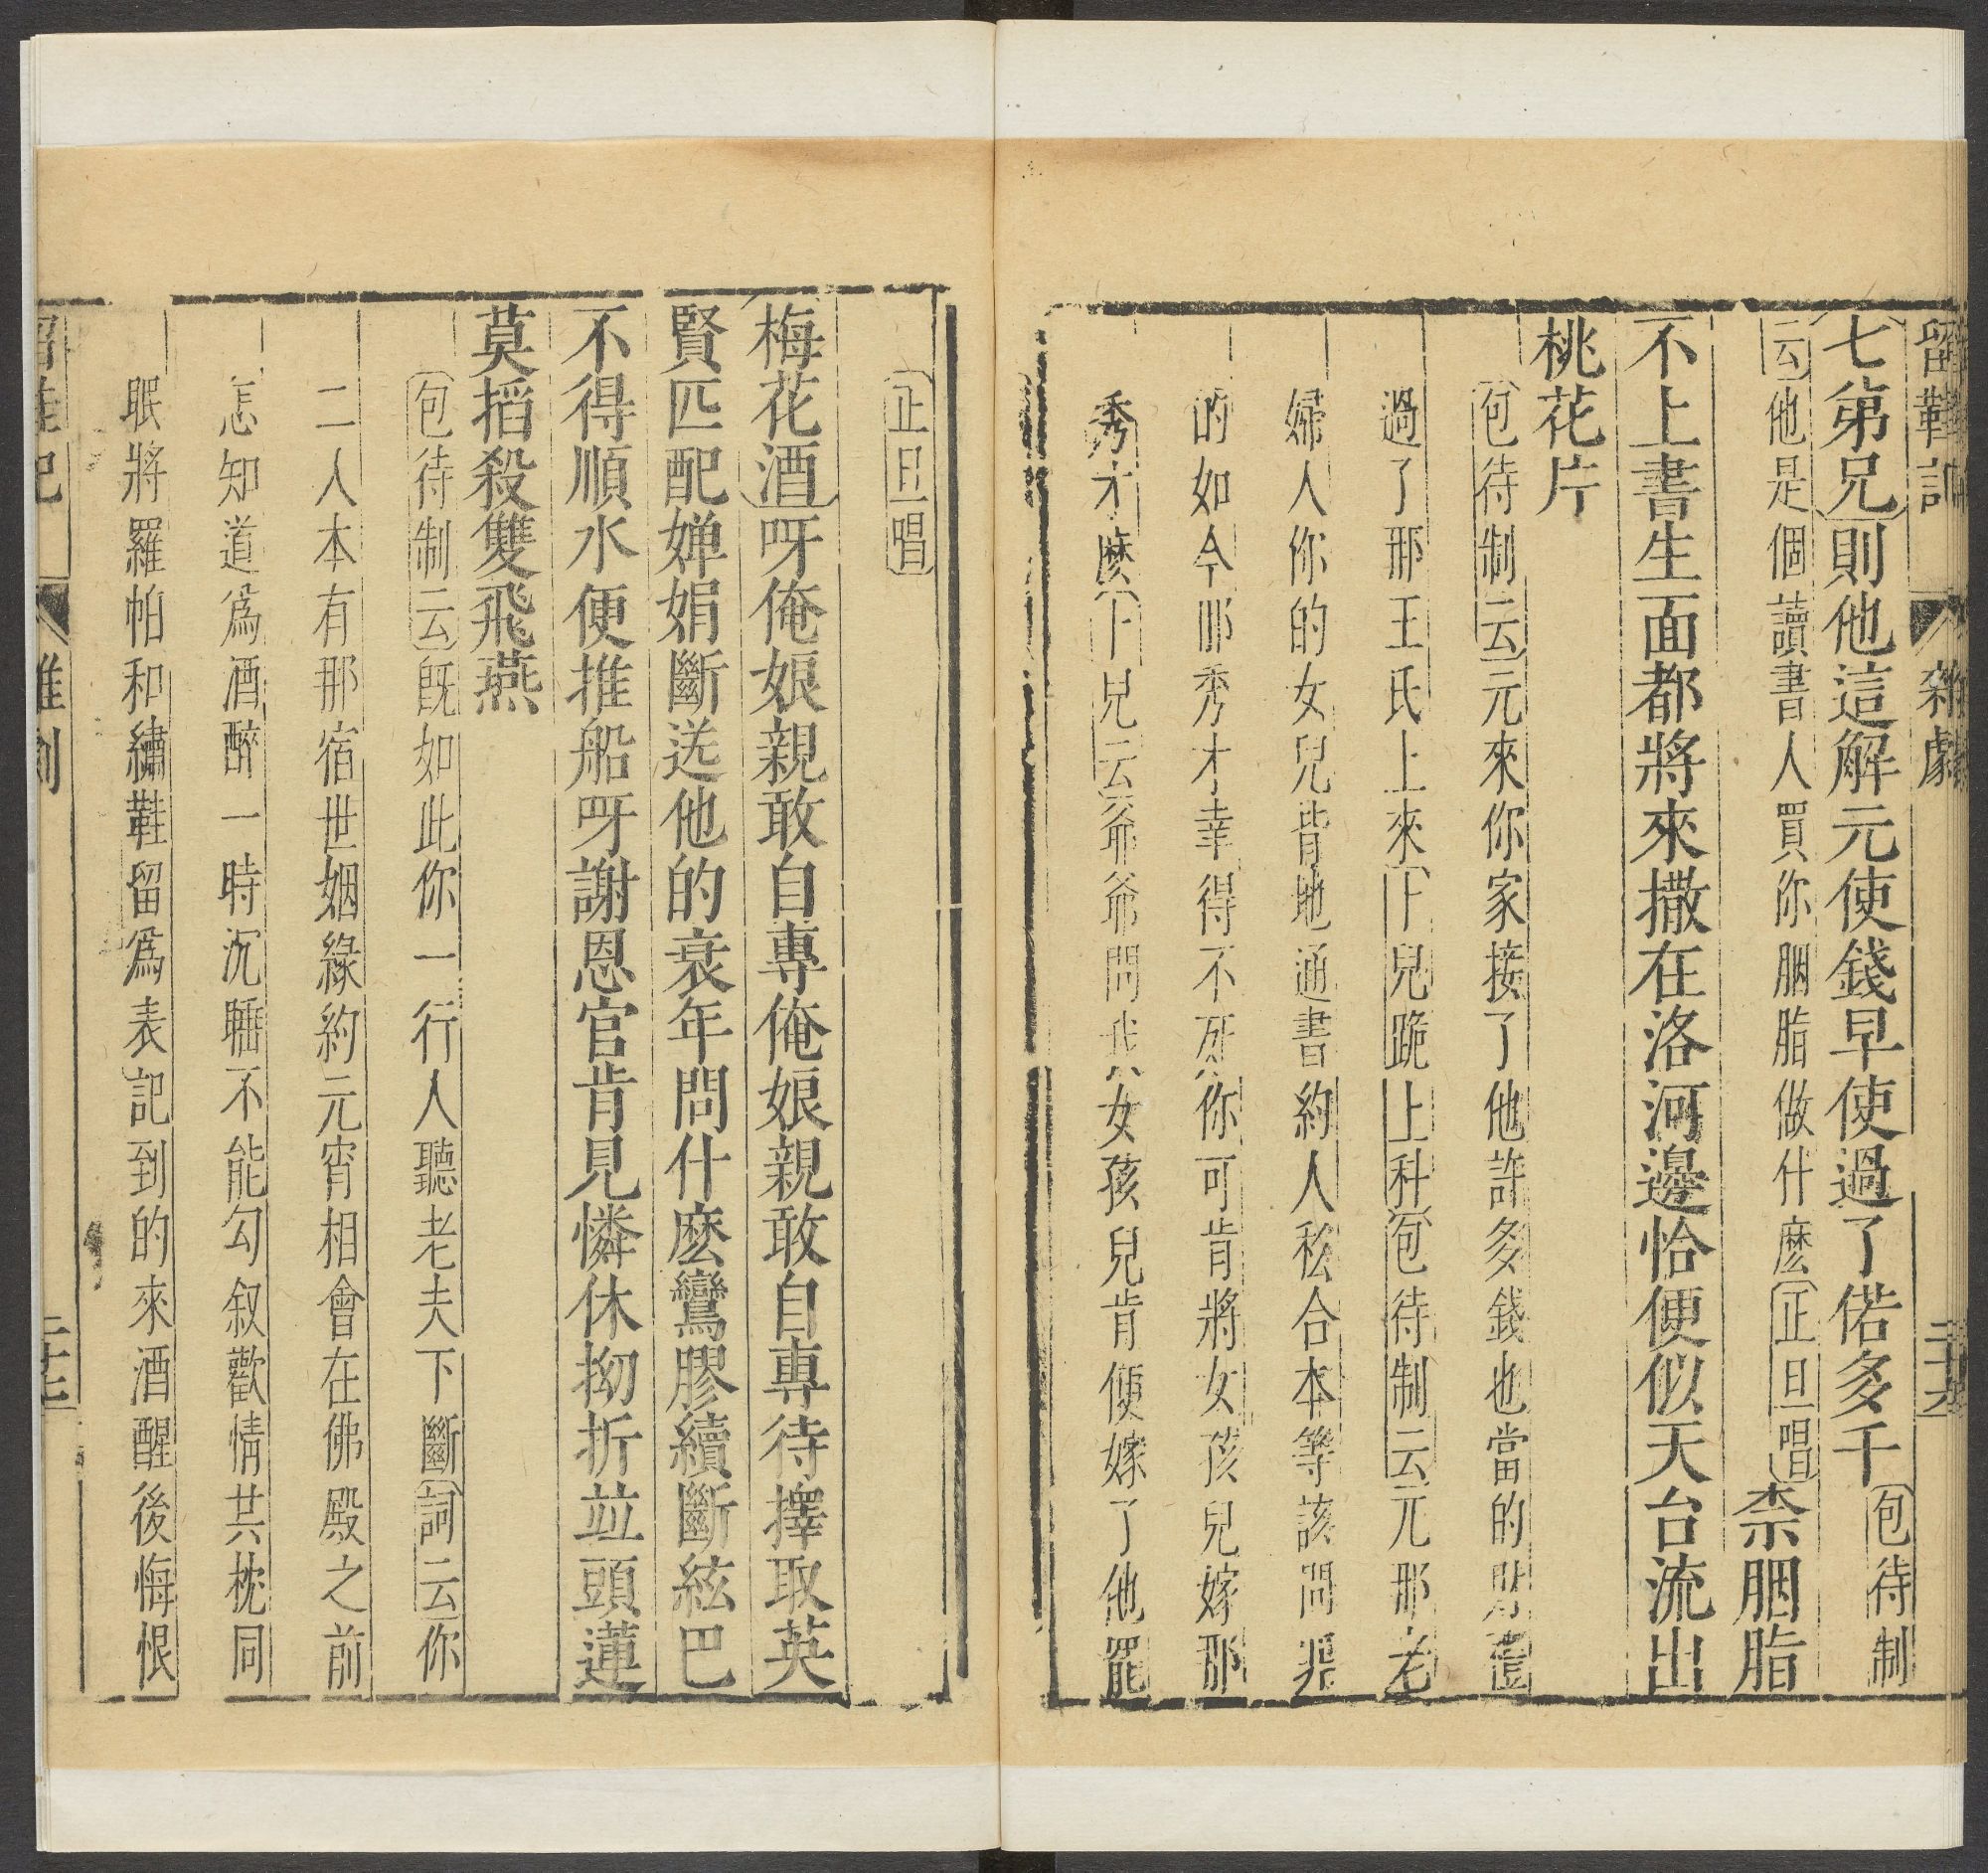 留鞋記 雜劇 二十六
七弟兄則他這解元使錢早使過了偌多千包待制
云他是個讀書人買你胭脂做什麽正旦唱柰胭脂
不上書生面都將來撒在洛河邊恰便似天台流出
桃花片
包待制云元來你家接了他許多錢也當的財禮
過了那王氏上來卜兒跪上科包待制云元那老
婦人你的女兒背地通書約人私合本等該問罪
的如今那秀才幸得不死你可肯將女孩兒嫁那
秀才麽卜兒云爺爺問我女孩兒肯便嫁了他罷
正旦唱
梅花酒呀俺娘親敢自專俺娘親敢自專待擇取英
賢匹配嬋娟斷送他的衰年問什麽鸞膠續斷絃巴
不得順水便推船呀謝恩官肯見憐休拗折並頭蓮
莫搯殺雙飛燕
包待制云旣如此你一行人聽老夫下斷詞云你
二人本有那宿世姻緣約元宵相會在佛殿之前
怎知道爲酒醉一時沉睡不能勾叙歡情共枕同
眠將羅帕和繡鞋留爲表記到的來酒醒後悔恨
留鞋記 雜劇 二十七